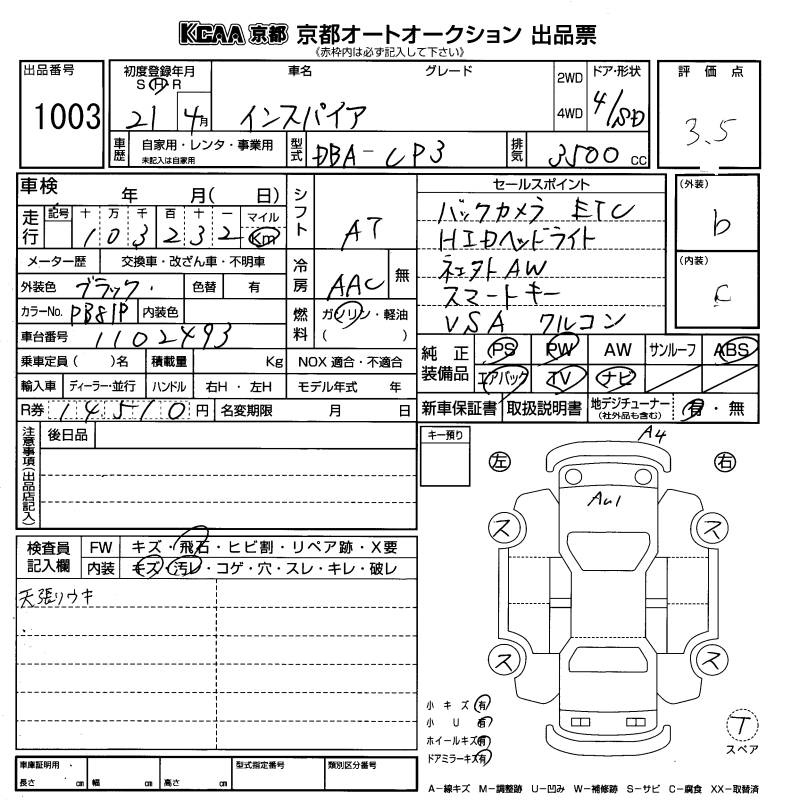 KCAA 京都 京都オートオークション 出品票
《赤枠内は必ず記入して下さい》
出品番号 初度登録年月 車名 グレード 2WD ドア・形状 評価点
S H R
1003 21 4月 インスパイア 4WD 4/SD 3.5
車歴 自家用・レンタ・事業用 型式 DBA-CP3 排気 3500 CC
未記入は自家用
車検 年 月( 日) シフト AT セールスポイント (外装)
走行 記号 十 万 千 百 十 一 マイル バックカメラ ETC b
1 0 3 2 3 2 Km HIDヘッドライト
メーター歴 交換車・改ざん車・不明車 冷房 AAC 無 AW (内装)
外装色 ブラック 色替 有 スマートキー C
カラーNo. PB81P 内装色 燃料 ガソリン・軽油 VSA クルコン
車台番号 1102493 ( )
乗車定員 ( )名 積載量 Kg NOX 適合・不適合 純正装備品 PS PW AW サンルーフ ABS
輸入車 ディーラー・並行 ハンドル 右H・左H モデル年式 年 エアバック TV ナビ
R券 14510円 名変期限 月 日 新車保証書 取扱説明書 地デジチューナー 有・無
(社外品も含む)
注意事項(出品店記入) 後日品 キー預り A4
左 右
AU1
ス ス
検査員記入欄 FW キズ・飛石・ヒビ割・リペア跡・X要
内装 キズ・汚レ・コゲ・穴・スレ・キレ・破レ
天張りウキ
ス ス
小キズ 有
小U 有
ホイールキズ 有 T
ドアミラーキズ 有 スペア
車庫証明用 型式指定番号 類別区分番号
長さ cm 幅 cm 高さ cm
A-線キズ M-調整跡 U-凹み W-補修跡 S-サビ C-腐食 XX-取替済